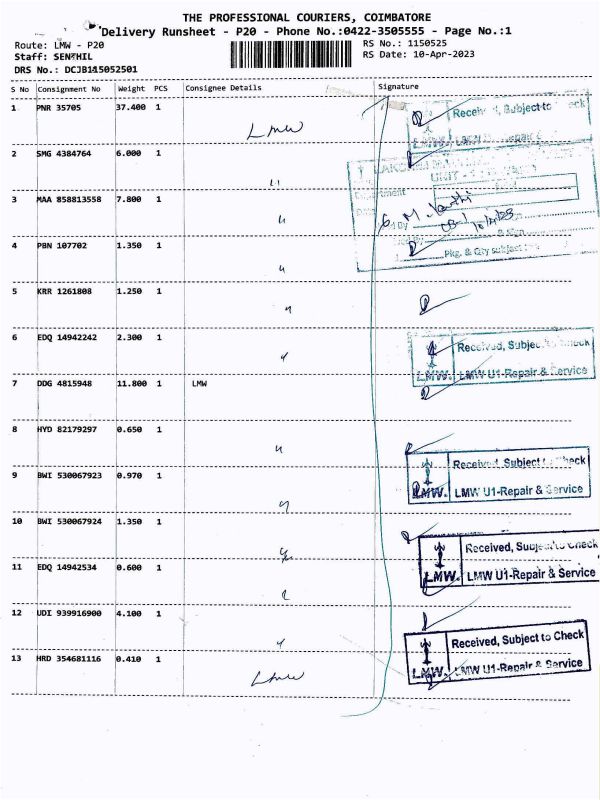 THE PROFESSIONAL COURIERS, COIMBATORE
Delivery Runsheet - P20 - Phone No.:0422-3505555 - Page No.:1
Route: LMW - P20
Staff: SENTHIL
DRS No.: DCJB115052501
RS No.: 1150525
RS Date: 10-Apr-2023
S No Consignment No Weight PCS Consignee Details Signature
1 PNR 35705 37.400 1 LMW
2 SMG 4384764 6.000 1 "
3 MAA 858813558 7.800 1 "
4 PBN 107702 1.350 1 "
5 KRR 1261808 1.250 1 "
6 EDQ 14942242 2.300 1 "
7 DDG 4815948 11.800 1 LMW
8 HYD 82179297 0.650 1 "
9 BWI 530067923 0.970 1 "
10 BWI 530067924 1.350 1 "
11 EDQ 14942534 0.600 1 "
12 UDI 939916900 4.100 1 "
13 HRD 354681116 0.410 1 LMW
Received, Subject to Check
LMW.
UNIT
Pkg. & Qty subject
Received, Subject to Check
LMW. LMW U1-Repair & Service
Received, Subject to Check
LMW. LMW U1-Repair & Service
Received, Subject to Check
LMW. LMW U1-Repair & Service
Received, Subject to Check
LMW. LMW U1-Repair & Service